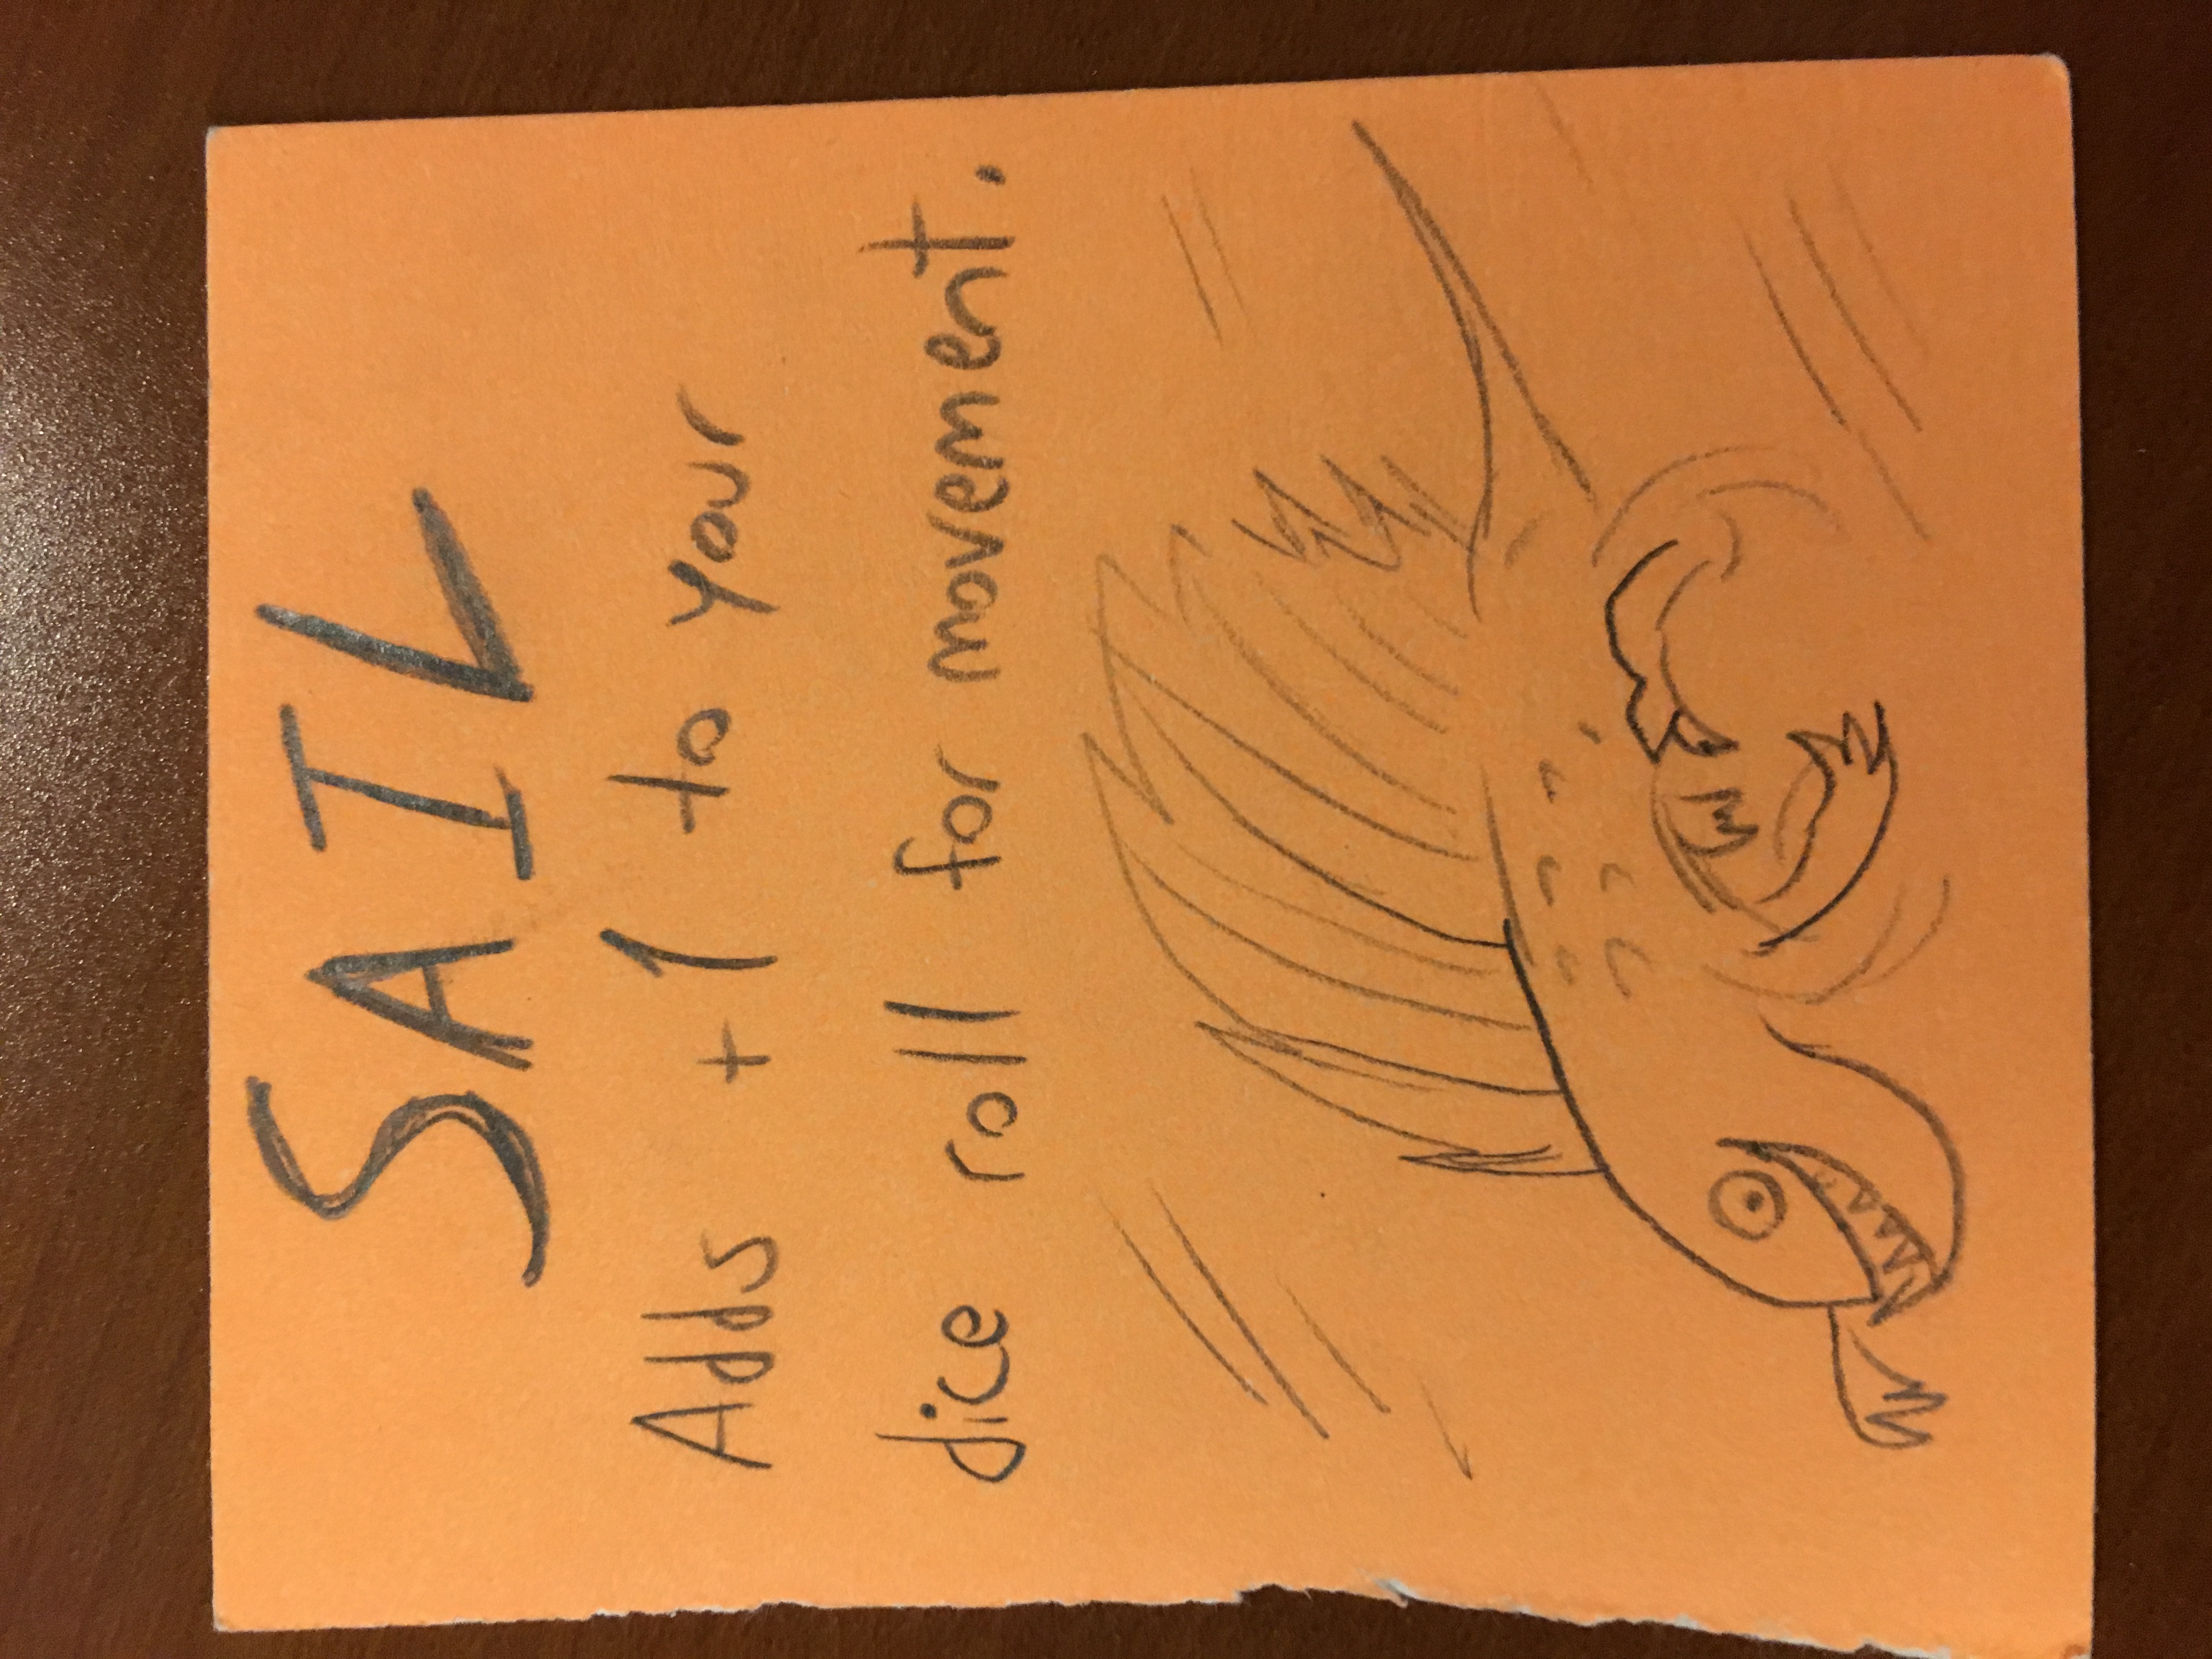 SAIL
Adds +1 to your
dice roll for movement.